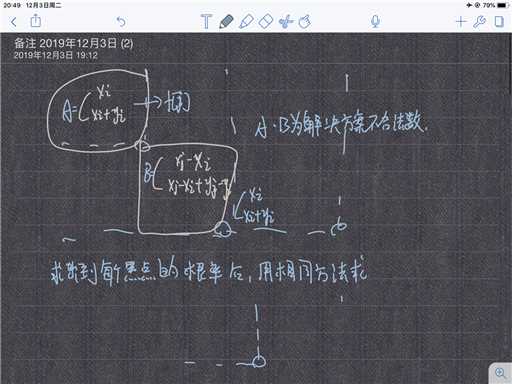 20:49 12月3日周二
79%
备注 2019年12月3日 (2)
2019年12月3日 19:12
A=( xi
xi+yi
A、B为解决方案不合法数.
B=( xj-xi
xj-xi+yj-yi
xi
xi+yi
求出到每个黑点的概率后，用相同方法求